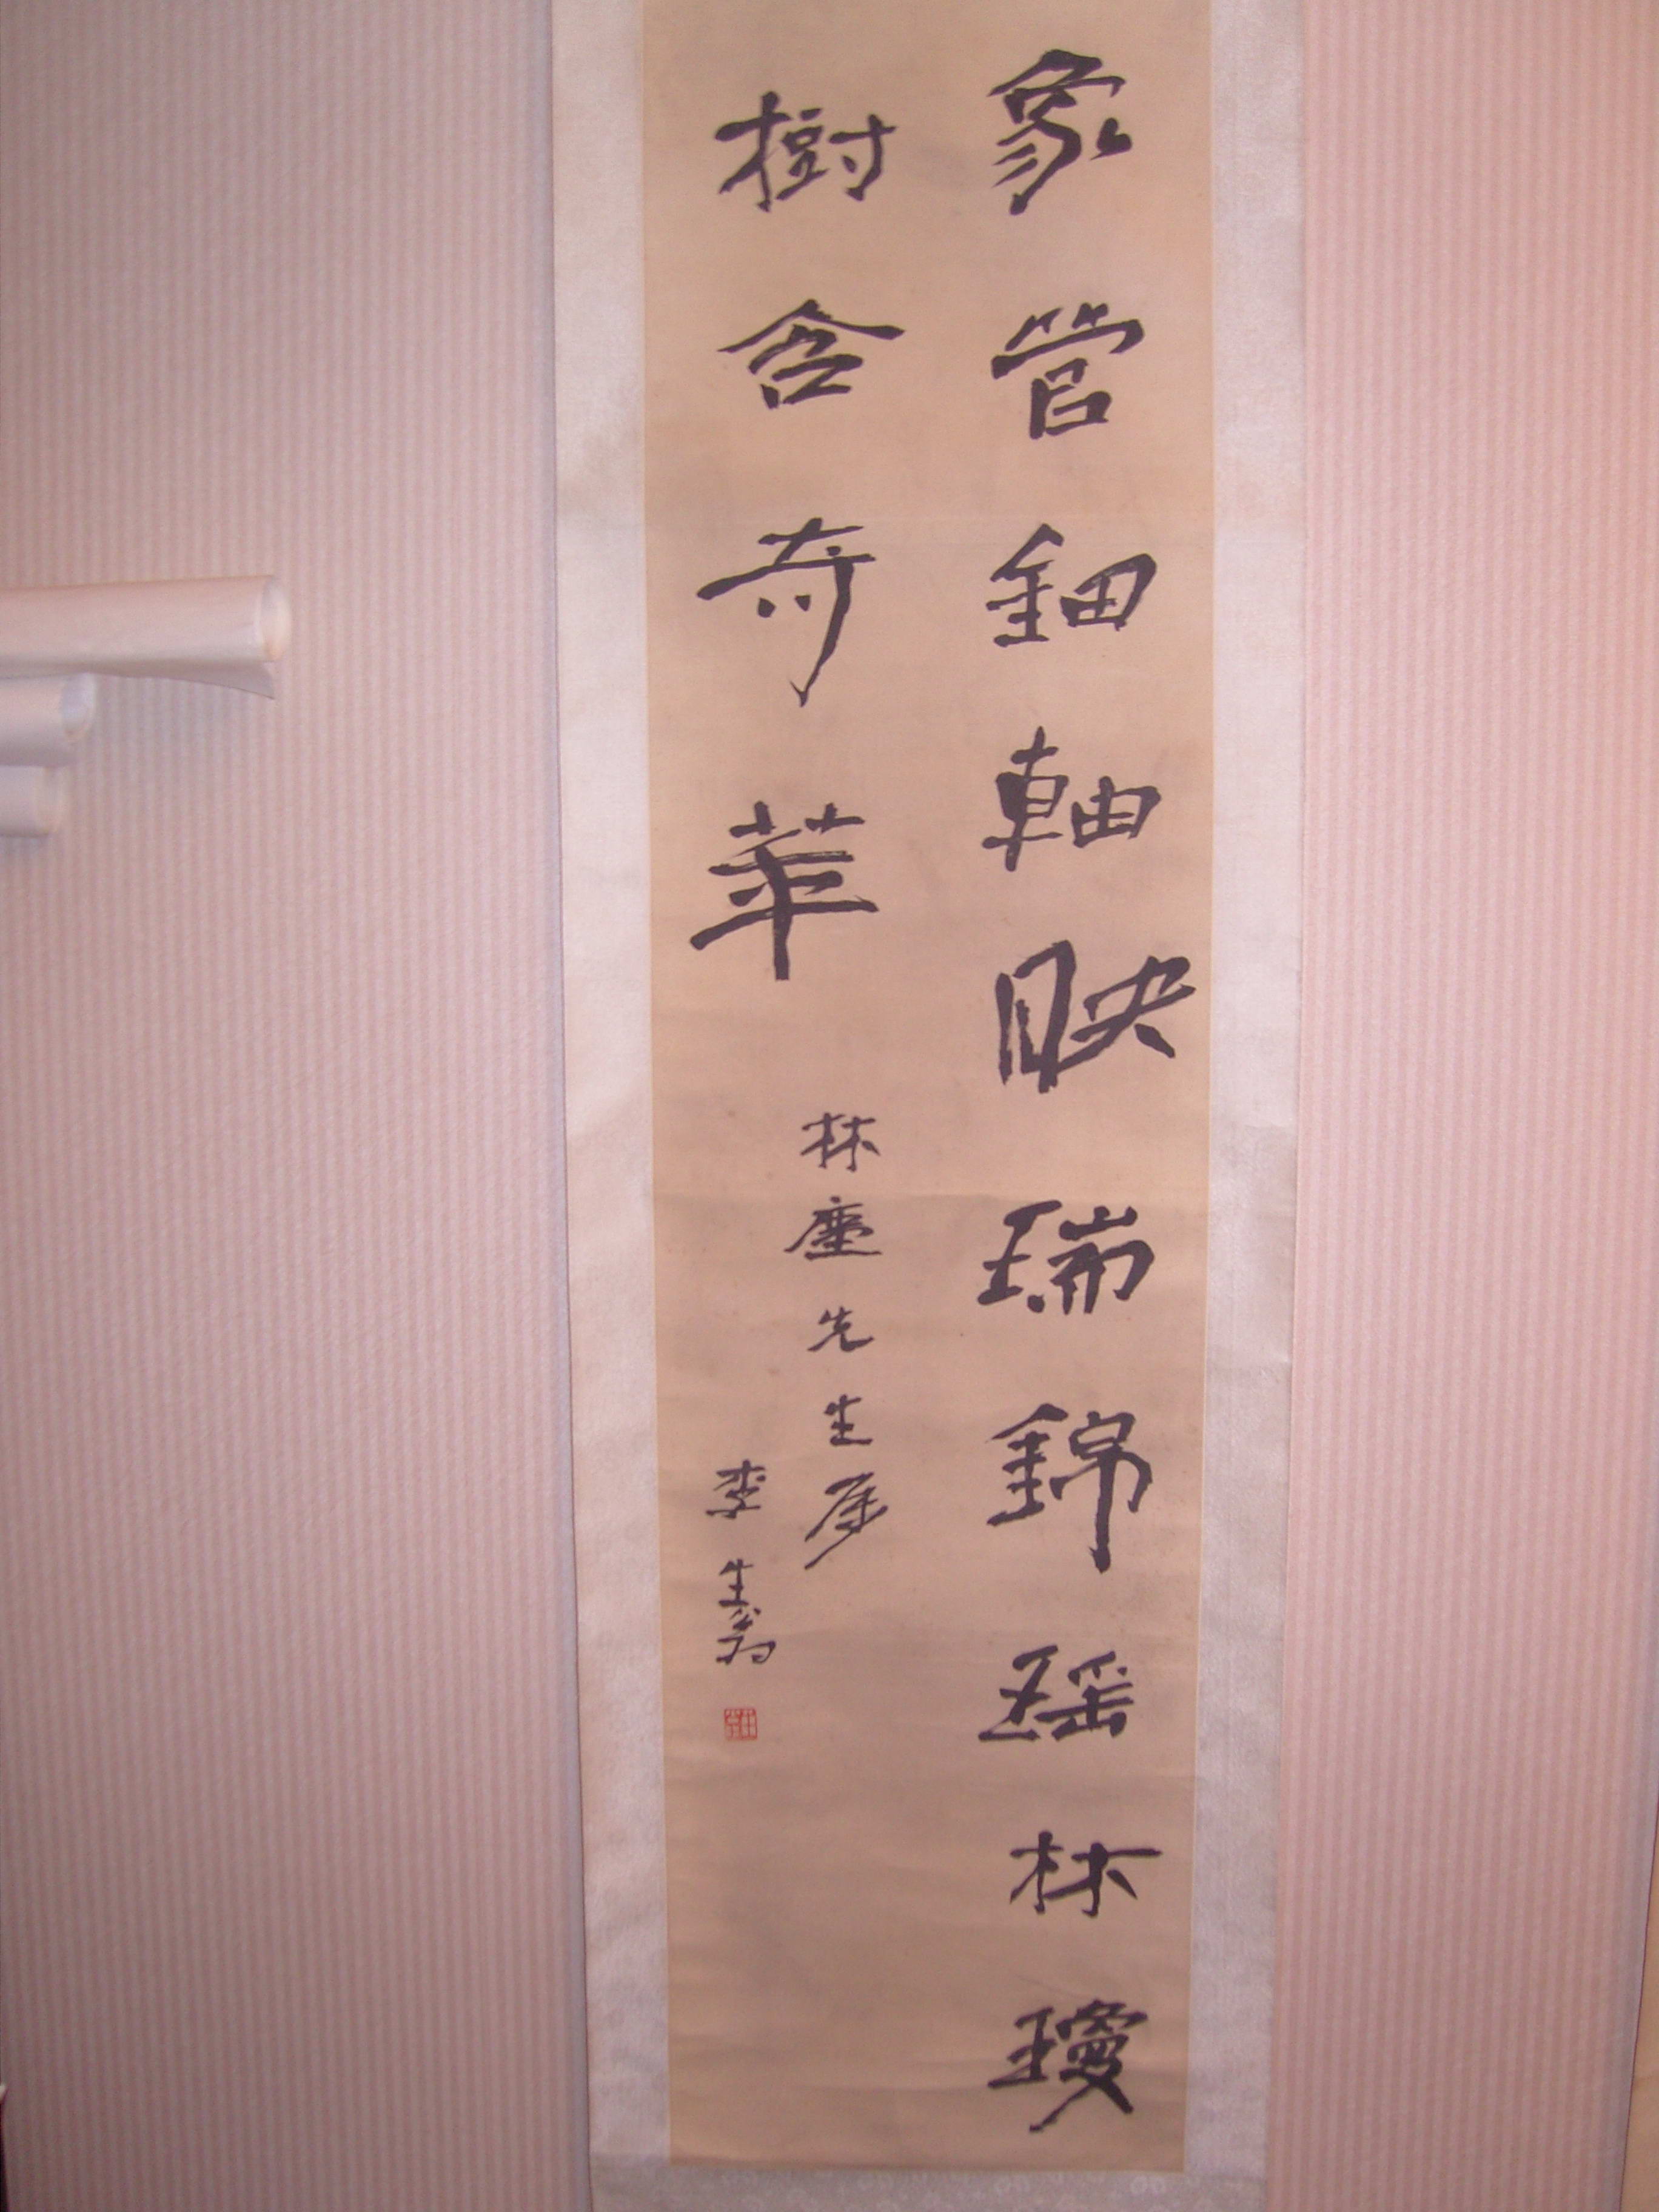 象管鈿軸映瑞錦瑶林瓊
樹含奇華
林塵先生属
李生翁